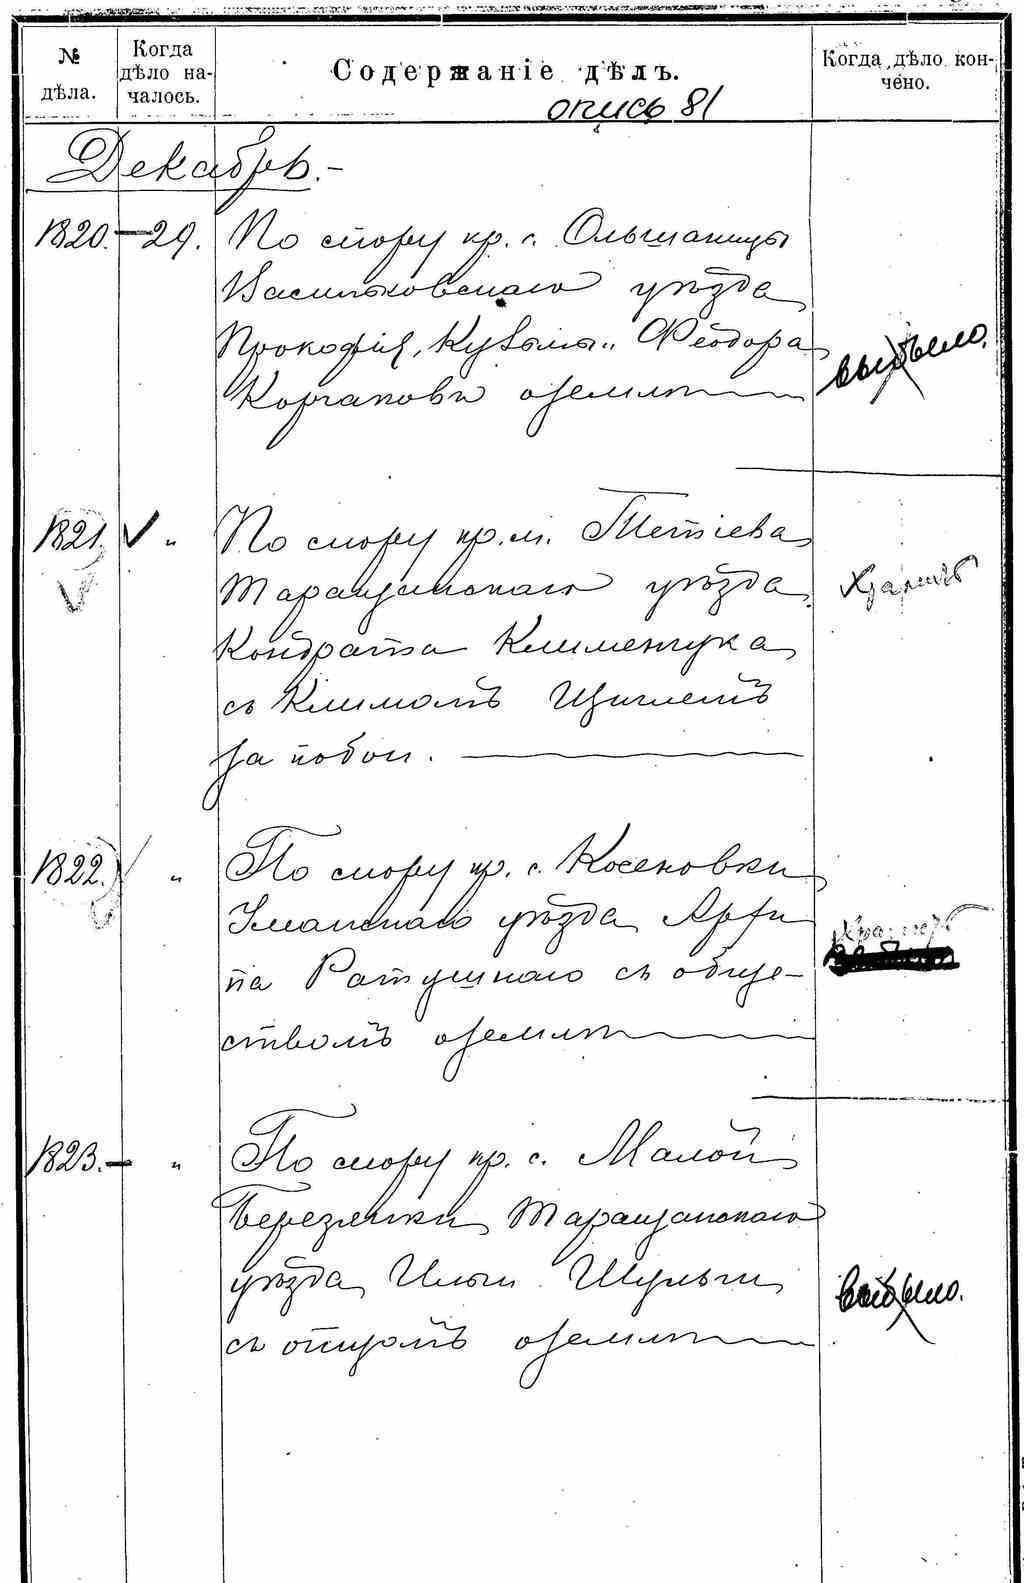 № дѣла.
Когда дѣло началось.
Содержаніе дѣлъ.
Когда дѣло кончено.
опись 81
Декабрь.-
1820.-29. По спору кр. с. Ольшаницы
Васильковскаго уѣзда
Прокофія, Кузьмы и Феодора
Корчаковъ о землѣ
выбыло.
1821. V „ По спору кр. м. Тетіева
Таращанскаго уѣзда
Кондрата Климчука
съ Климомъ
за побои.
Хранит
1822. „ По спору кр. с. Косеновки
Уманскаго уѣзда
Ратушнаго съ обще-
ствомъ о землѣ
1823.- „ По спору кр. с. Малой
Березянки Таращанскаго
уѣзда Ильи Шульги
съ отцомъ о землѣ
выбыло.